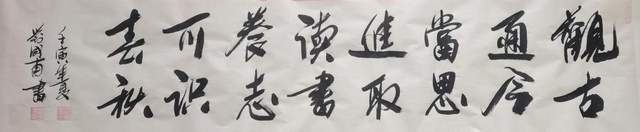 觀古
通今
當思
進取
讀書
養志
可识
春秋
壬寅年夏
國甫書